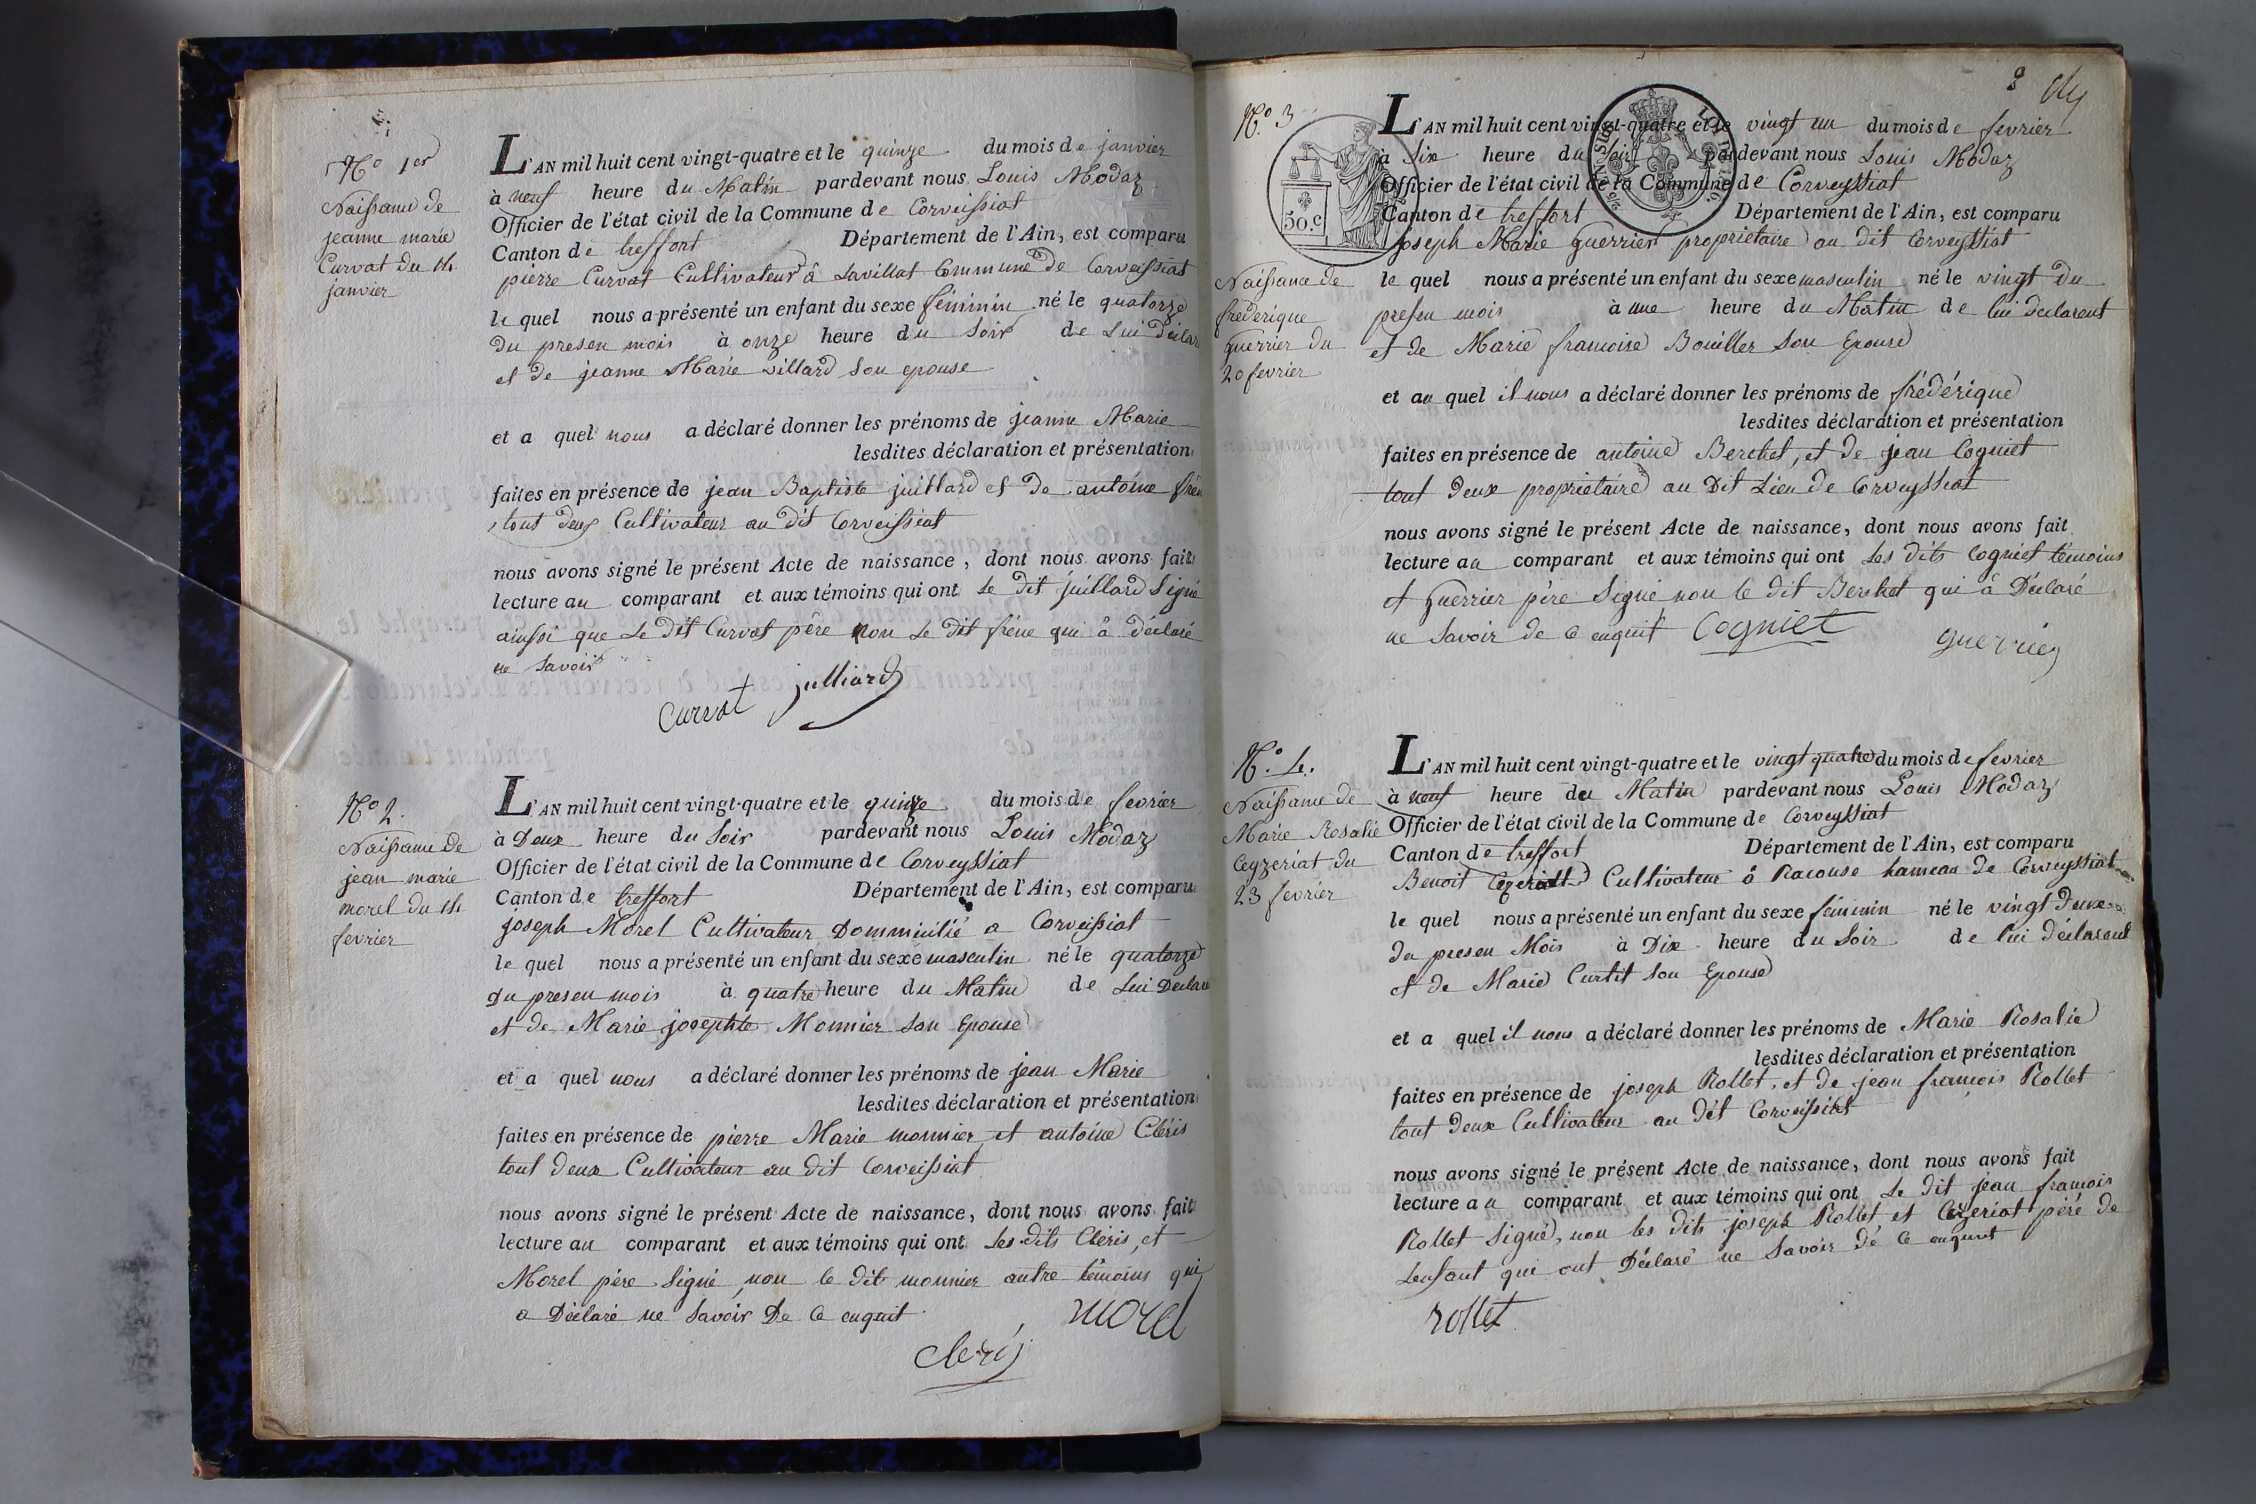 N.o 1er
Naissance de
jeanne marie
Curvat du 14
janvier
L'AN mil huit cent vingt-quatre et le quinze du mois de janvier
à neuf heure du Matin pardevant nous Louis Modaz
Officier de l'état civil de la Commune de Corveissiat
Canton de treffort Département de l'Ain, est comparu
pierre Curvat Cultivateur à Lavillat Commune de Corveissiat
le quel nous a présenté un enfant du sexe féminin né le quatorze
Du presen mois à onze heure du Soir de Lui Déclar
et de jeanne Marie villard Son epouse
et a quel nous a déclaré donner les prénoms de jeanne Marie
lesdites déclaration et présentation
faites en présence de jean Baptiste juillard et de antoine frén
tout deux Cultivateur au dit Corveissiat
nous avons signé le présent Acte de naissance, dont nous avons fait
lecture au comparant et aux témoins qui ont Le dit juillard Signé
ainssi que Le dit Curvat père non Le dit fréne qui à déclaré
ne Savoir
curvat julliard
N.o 2.
Naissance De
jean marie
morel du 14
fevrier
L'AN mil huit cent vingt-quatre et le quinze du mois de fevrier
à Deux heure du Soir pardevant nous Louis Modaz
Officier de l'état civil de la Commune de Corveyssiat
Canton de treffort Département de l'Ain, est comparu
joseph Morel Cultivateur Domminilié a Corveissiat
le quel nous a présenté un enfant du sexe masculin né le quatorze
Du presen mois à quatre heure du Matin de Lui Declar
et de Marie josephte Monnier Son Epouse
et a quel nous a déclaré donner les prénoms de jean Marie
lesdites déclaration et présentation
faites en présence de pierre Marie monnier et antoine Cléris
tout deux Cultivateur au dit Corveissiat
nous avons signé le présent Acte de naissance, dont nous avons fait
lecture au comparant et aux témoins qui ont Les dits Cléris, et
Morel père Signé, non le dit monnier autre témoins qui
a Déclaré ne Savoir De Ce enquit
morel
cleris
N.o 3
50.c
Naissance de
frederique
Guerrier du
20 fevrier
L'AN mil huit cent vingt-quatre et le vingt un du mois de fevrier
à Six heure du Soir pardevant nous Louis Modaz
Officier de l'état civil de la Commune de Corveyssiat
Canton de treffort Département de l'Ain, est comparu
joseph Marie Guerrier proprietaire au dit Corveyssiat
le quel nous a présenté un enfant du sexe masculin né le vingt du
presen mois à une heure du Matin de lui declarent
et de Marie francoise Bouiller Son Epouse
et au quel il nous a déclaré donner les prénoms de frédérique
lesdites déclaration et présentation
faites en présence de antoine Berchet, et de jean Cogniet
tout deux proprietaire au Dit Lieu de Corveyssiat
nous avons signé le présent Acte de naissance, dont nous avons fait
lecture au comparant et aux témoins qui ont Les dits Cogniet témoins
et Guerrier père Signé non le dit Berchet qui à Déclaré
ne Savoir de ce enquit Cogniet guerrier
N.o 4.
Naissance de
Marie Rosalie
Ceyzeriat du
23 fevrier
L'AN mil huit cent vingt-quatre et le vingt quatre du mois de fevrier
à neuf heure du Matin pardevant nous Louis Modaz
Officier de l'état civil de la Commune de Corveyssiat
Canton de treffort Département de l'Ain, est comparu
Benoit Cezeriatt Cultivateur à Racouse hameau de Corveyssiat
le quel nous a présenté un enfant du sexe féminin né le vingt Deux
du presen Mois à Dix heure du Soir de lui déclarent
et de Marie Curtit Son Epouse
et a quel il nous a déclaré donner les prénoms de Marie Rosalie
lesdites déclaration et présentation
faites en présence de joseph Rollet, et de jean francois Rollet
tout deux Cultivateur au dit Corveissiat
nous avons signé le présent Acte de naissance, dont nous avons fait
lecture au comparant et aux témoins qui ont Le dit jean francois
Rollet Signé, non les dits joseph Rollet et Cezeriat père de
Lenfant qui ont Déclaré ne Savoir de Ce enquit
rollet